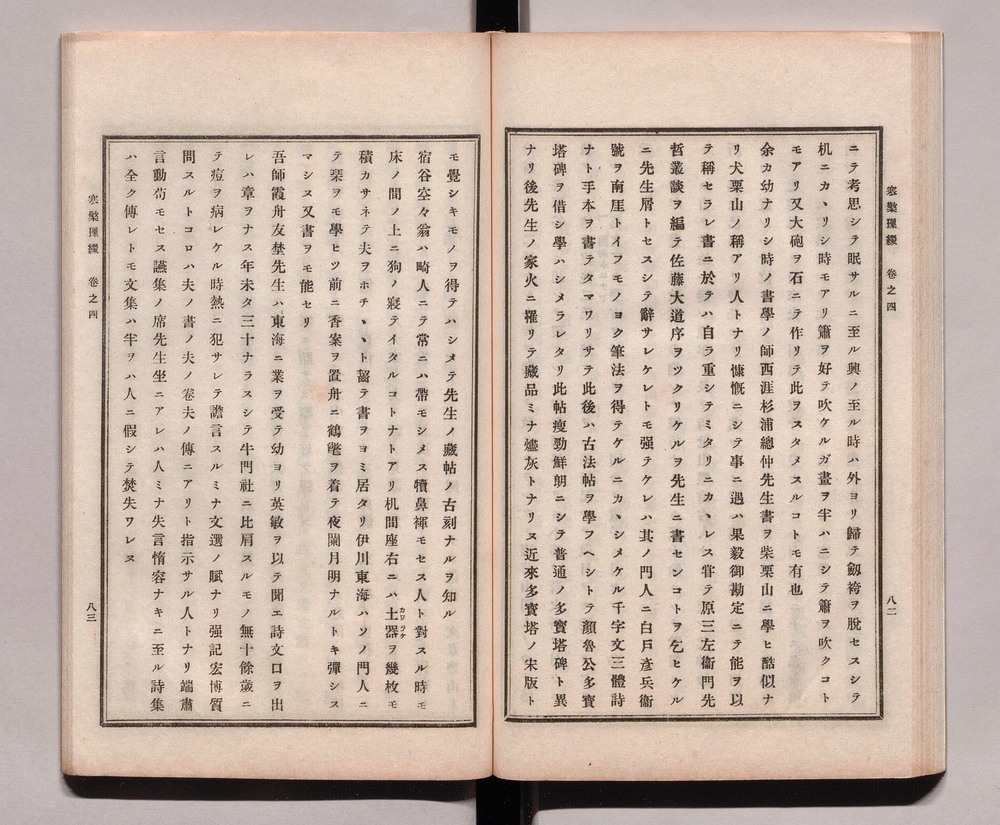 ニテ考思シテ眠サルニ至ル興ノ至ル時ハ外ヨリ歸テ劔袴ヲ脫セスシテ
机ニカヽリシ時モアリ簫ヲ好テ吹ケルガ晝ヲ半ハニシテ簫ヲ吹クコト
モアリ又大砲ヲ石ニテ作リテ此ヲスタメスルコトモ有也
余カ幼ナリシ時ノ書學ノ師西涯杉浦總仲先生書ヲ柴栗山ニ學ヒ酷似ナ
リ犬栗山ノ稱アリ人トナリ慷慨ニシテ事ニ遇ハ果毅御勘定ニテ能ヲ以
テ稱セラレ書ニ於テハ自ラ重シテミタリニカヽレス甞テ原三左衞門先
哲叢談ヲ編テ佐藤大道序ヲツクリケルヲ先生ニ書センコトヲ乞ヒケル
ニ先生屑トセスシテ辭サレケレトモ强テケレハ其ノ門人ニ白戶彥兵衞
號ヲ南厓トイフモノヨク筆法ヲ得テケルニカヽシメケル千字文三體詩
ナト手本ヲ書テタマワリサテ此後ハ古法帖ヲ學フヘシトテ顏魯公多寶
塔碑ヲ借シ學ハシメラレタリ此帖瘦勁鮮朗ニシテ普通ノ多寶塔碑ト異
ナリ後先生ノ家火ニ罹リテ藏品ミナ燼灰トナリヌ近來多寶塔ノ宋版ト
卷之四
八二
モ覺シキモノヲ得テハシメテ先生ノ藏帖ノ古刻ナルヲ知ル
宿谷空々翁ハ畸人ニテ常ニハ帶モシメス犢鼻褌モセス人ト對スル時モ
床ノ間ノ上ニ狗ノ寢テイタルコトナトアリ机間座右ニハ土器ヲ幾枚モ
カワラケ
積カサネテ夫ヲホチヽヽト齧テ書ヲヨミ居タリ伊川東海ハソノ門人ニ
テ琹ヲモ學ヒツ前ニ香案ヲ置舟ニ鶴氅ヲ着テ夜闌月明ナルトキ彈シス
マシヌ又書ヲモ能セリ
吾師霞舟友埜先生ハ東海ニ業ヲ受テ幼ヨリ英敏ヲ以テ聞エ詩文口ヲ出
レハ章ヲナス年未タ三十ナラスシテ牛門社ニ比肩スルモノ無十餘歲ニ
テ痘ヲ病レケル時熱ニ犯サレテ譫言スルミナ文選ノ賦ナリ强記宏博質
問スルトコロハ夫ノ書ノ夫ノ卷夫ノ傳ニアリト指示サル人トナリ端肅
言動苟モセス讌集ノ席先生坐ニアレハ人ミナ失言惰容ナキニ至ル詩集
ハ全ク傳レトモ文集ハ半ヲハ人ニ假シテ焚失ワレヌ
卷之四
八三